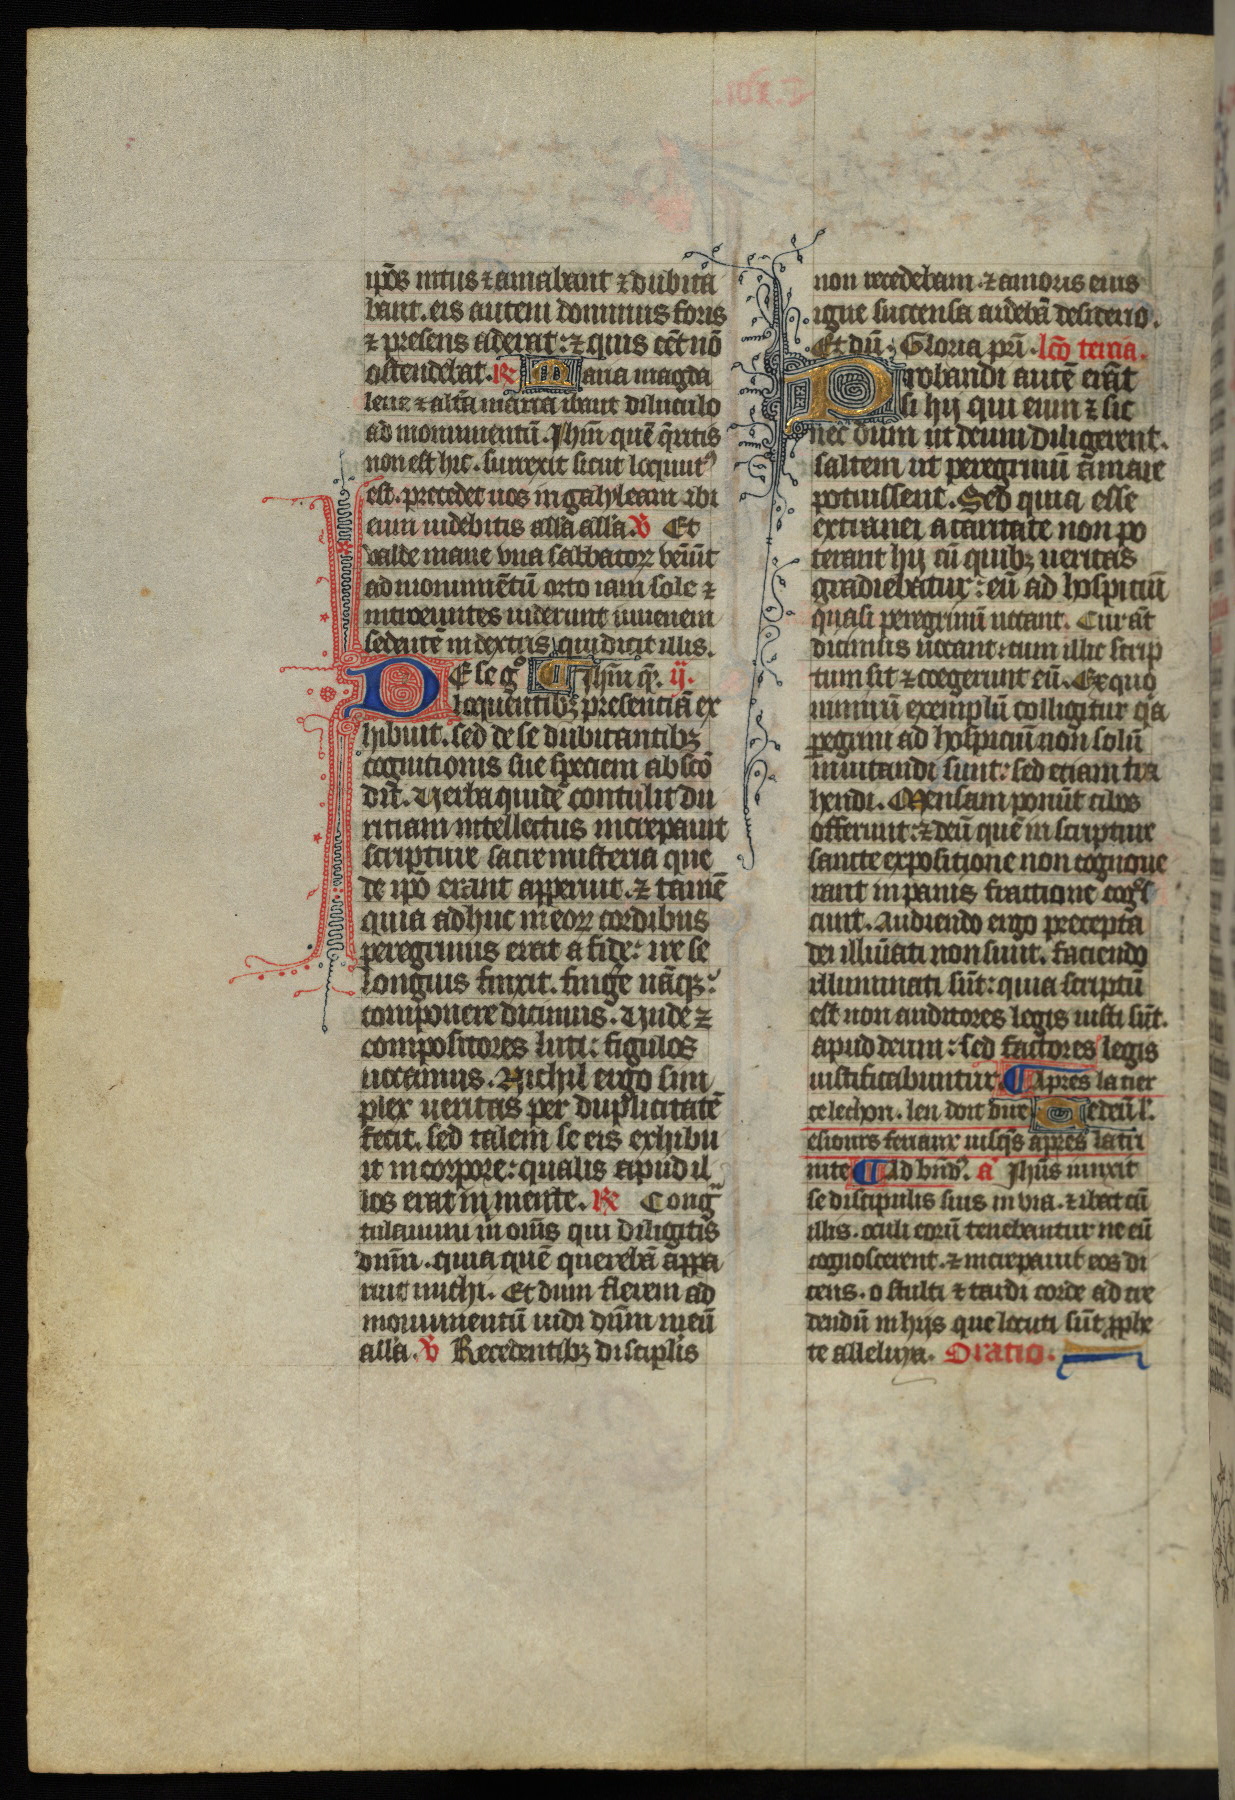 ip̄os intus ⁊ amabant ⁊ dubita
bant. eis autem dominus foris
⁊ presens aderat: ⁊ quis eēt nō
ostendebat. R̷ Maria magda
lene ⁊ alt̄a maria ibant diluculo
ad monumentū. Jhm̄ quē q̄ritis
non est hic. surrexit sicut locutꝰ
est. precedet uos in galyleam ibi
eum uidebitis all̄a all̄a. V̷ Et
valde mane vna sabbatoꝝ veniūt
ad monumētū orto iam sole ⁊
introeuntes uiderunt iuuenem
sedentē in dextris qui dicit illis.
Jhm̄ q̄. ij.
DE se gͦ
loquentibꝫ presentiā ex
hibuit. sed de se dubitantibꝫ
cognitionis sue speciem abscō
dit. Uerba quidē contulit du
ritiam intellectus increpauit
scripture sacre misteria que
de ip̄o erant apperuit. ⁊ tamē
quia adhuc in eoꝝ cordibus
peregrinus erat a fide: ire se
longius finxit. fingere nāqꝫ
componere dicimus. Unde ⁊
compositores luti: figulos
uocamus. Nichil ergo sim
plex ueritas per duplicitatē
fecit. sed talem se eis exhibu
it in corpore: qualis apud il
los erat in mente. R̷ Cong
tulamini m̄ om̄s qui diligitis
dn̄m. quia quē querebā appa
ruit michi. Et dum flerem ad
monumentū uidi dn̄m meū
all̄a. V̷ Recedentibꝫ discipl̄is
non recedebam. ⁊ amoris eius
igne succensa ardebā desiderio.
Et dū. Gloria pr̄i. lc̄o tercia.
Probandi autē erāt
si hij qui eum ⁊ sic
nec dum ut deum diligerent.
saltem ut peregrinū amare
potuissent. Sed quia esse
extranei a caritate non po
terant hij cū quibꝫ ueritas
gradiebatur: eū ad hospiciū
quasi peregrinū uocant. Cur āt
dicimus uocant: cum illic scrip
tum sit ⁊ coegerunt eū. Ex quo
nimirū exemplū colligitur qͥa
pegrini ad hospiciū non solū
inuitandi sunt: sed etiam tra
hendi. Mensam ponūt cibos
offerunt: ⁊ deū quē in scripture
sancte expositione non cognoue
rant in panis fractione cogͦs
cunt. Audiendo ergo precepta
dei illuīati non sunt. faciendo
illuminati sūt: quia scriptū
est non auditores legis iusti sūt.
apud deum: sed factores legis
iustificabuntur. Apres la tier
ce lechon. len doit dire Te deū l.
esiours feriaux iusqs apres la tri
nite Ad bn̄dꝰ. a Jhūs iunxit
se discipulis suis in via. ⁊ ibat cū
illis. oculi eorū tenebantur ne eū
cognoscerent. ⁊ increpauit eos di
cens. o stulti ⁊ tardi corde ad cre
dendū in hijs que locuti sūt ꝓphe
te alleluya. Oratio.